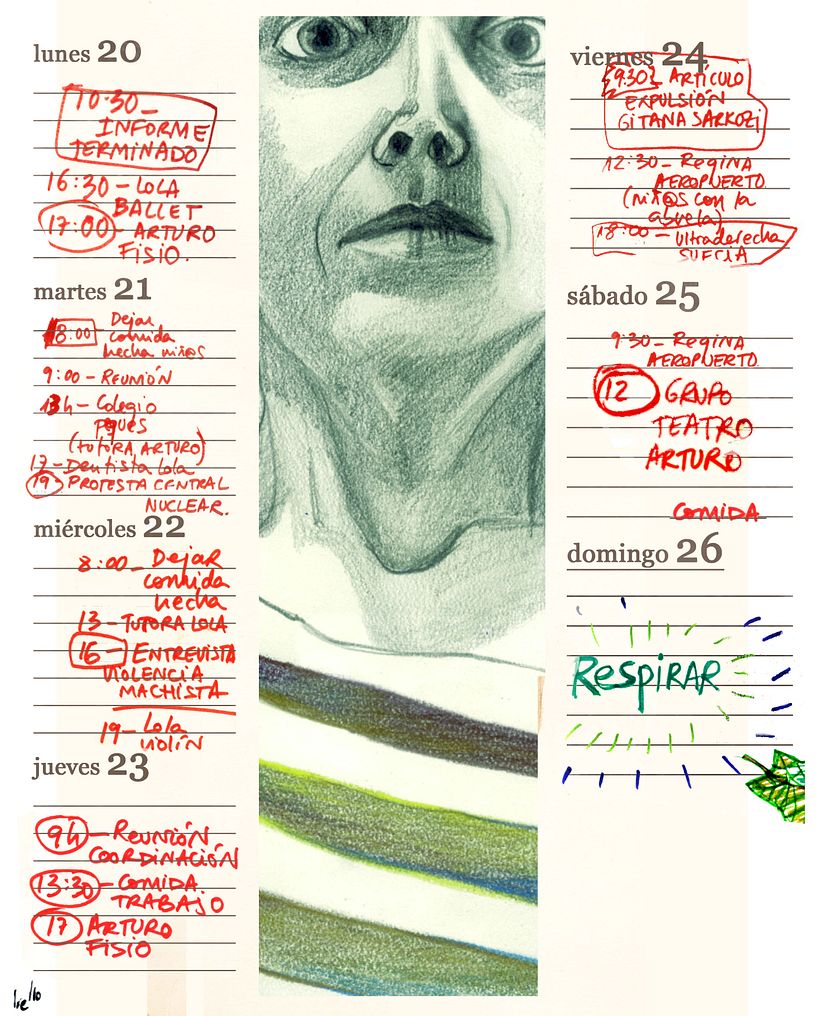 lunes 20
10:30 –
INFORME
TERMINADO
16:30 – LOLA
BALLET
17:00 – ARTURO
FISIO.
martes 21
8:00 – Dejar
comida
hecha niñ@s
9:00 – REUNIÓN
13h – Colegio
peques
(tutora ARTURO)
17 – Dentista Lola
19 PROTESTA CENTRAL
NUCLEAR.
miércoles 22
8:00 – Dejar
comida
hecha
13 – TUTORA LOLA
16 – ENTREVISTA
VIOLENCIA
MACHISTA
19 – Lola
violín
jueves 23
9h – REUNIÓN
COORDINACIÓN
13:30 – COMIDA
TRABAJO
17 ARTURO
FISIO
viernes 24
9:30 ARTÍCULO
EXPULSIÓN
GITANA SARKOZI
12:30 – Regina
AEROPUERTO
(niñ@s con la
abuela)
18:00 – Ultraderecha
SUECIA
sábado 25
9:30 – Regina
AEROPUERTO
12 GRUPO
TEATRO
ARTURO
COMIDA
domingo 26
RESPIRAR